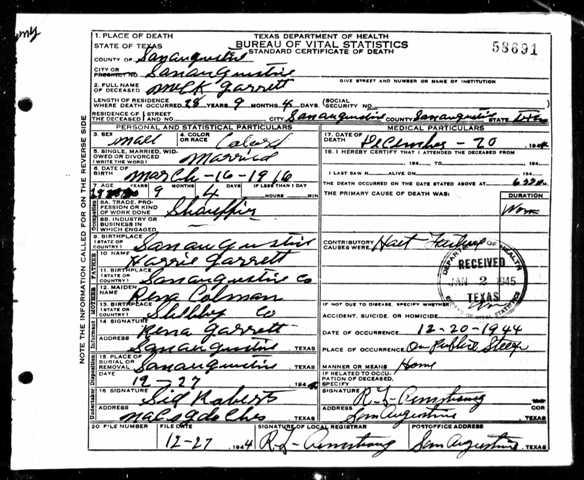 TEXAS DEPARTMENT OF HEALTH
BUREAU OF VITAL STATISTICS
STANDARD CERTIFICATE OF DEATH
58691
1. PLACE OF DEATH
STATE OF TEXAS
COUNTY OF San augustine
CITY OR PRECINCT NO. San augustine
GIVE STREET AND NUMBER OR NAME OF INSTITUTION
2. FULL NAME OF DECEASED Garrett
LENGTH OF RESIDENCE WHERE DEATH OCCURRED 28 YEARS 9 MONTHS 4 DAYS (SOCIAL SECURITY NO.
RESIDENCE OF THE DECEASED STREET AND NO. CITY San augustine COUNTY San augustin STATE Texas
PERSONAL AND STATISTICAL PARTICULARS
3. SEX male 4. COLOR OR RACE Colard
5. SINGLE, MARRIED, WIDOWED OR DIVORCED (WRITE THE WORD) Married
6. DATE OF BIRTH March-16-1916
7. AGE YEARS 9 MONTHS 4 DAYS IF LESS THAN 1 DAY HOURS MIN
8A. TRADE, PROFESSION OR KIND OF WORK DONE
8B. INDUSTRY OR BUSINESS IN WHICH ENGAGED
9. BIRTHPLACE (STATE OR COUNTRY) San augustine
10. NAME Harris Garrett
11. BIRTHPLACE (STATE OR COUNTRY) San augustine Co
12. MAIDEN NAME Rena Colman
13. BIRTHPLACE (STATE OR COUNTRY) Shelby Co
14. SIGNATURE Rena Garrett
ADDRESS San augustine TEXAS
15. PLACE OF BURIAL OR REMOVAL San augustine TEXAS
12-27 194
16. SIGNATURE Sid Roberts
ADDRESS TEXAS
MEDICAL PARTICULARS
17. DATE OF DEATH December-20 194
18. I HEREBY CERTIFY THAT I ATTENDED THE DECEASED FROM
194 TO 194
I LAST SAW H ALIVE ON 194
THE DEATH OCCURRED ON THE DATE STATED ABOVE AT M.
THE PRIMARY CAUSE OF DEATH WAS: DURATION
CONTRIBUTORY CAUSES WERE: Hart Failure
DEPARTMENT OF HEALTH
RECEIVED
JAN 2 1945
TEXAS
BUREAU OF VITAL STATISTICS
IF NOT DUE TO DISEASE, SPECIFY WHETHER
ACCIDENT, SUICIDE, OR HOMICIDE
DATE OF OCCURRENCE 12-20-1944
PLACE OF OCCURRENCE On Public Steep
MANNER OR MEANS Home
IF RELATED TO OCCUPATION OF DECEASED, SPECIFY
SIGNATURE R. L. Armstrong
ADDRESS San Augustine COR TEXAS
20 FILE NUMBER FILE DATE 12-27 1944 SIGNATURE OF LOCAL REGISTRAR R. L. Armstrong POSTOFFICE ADDRESS San Augustine TEXAS
NOTE THE INFORMATION CALLED FOR ON THE REVERSE SIDE
Occupation
FATHER
MOTHER
Informant
Undertaker Disposition